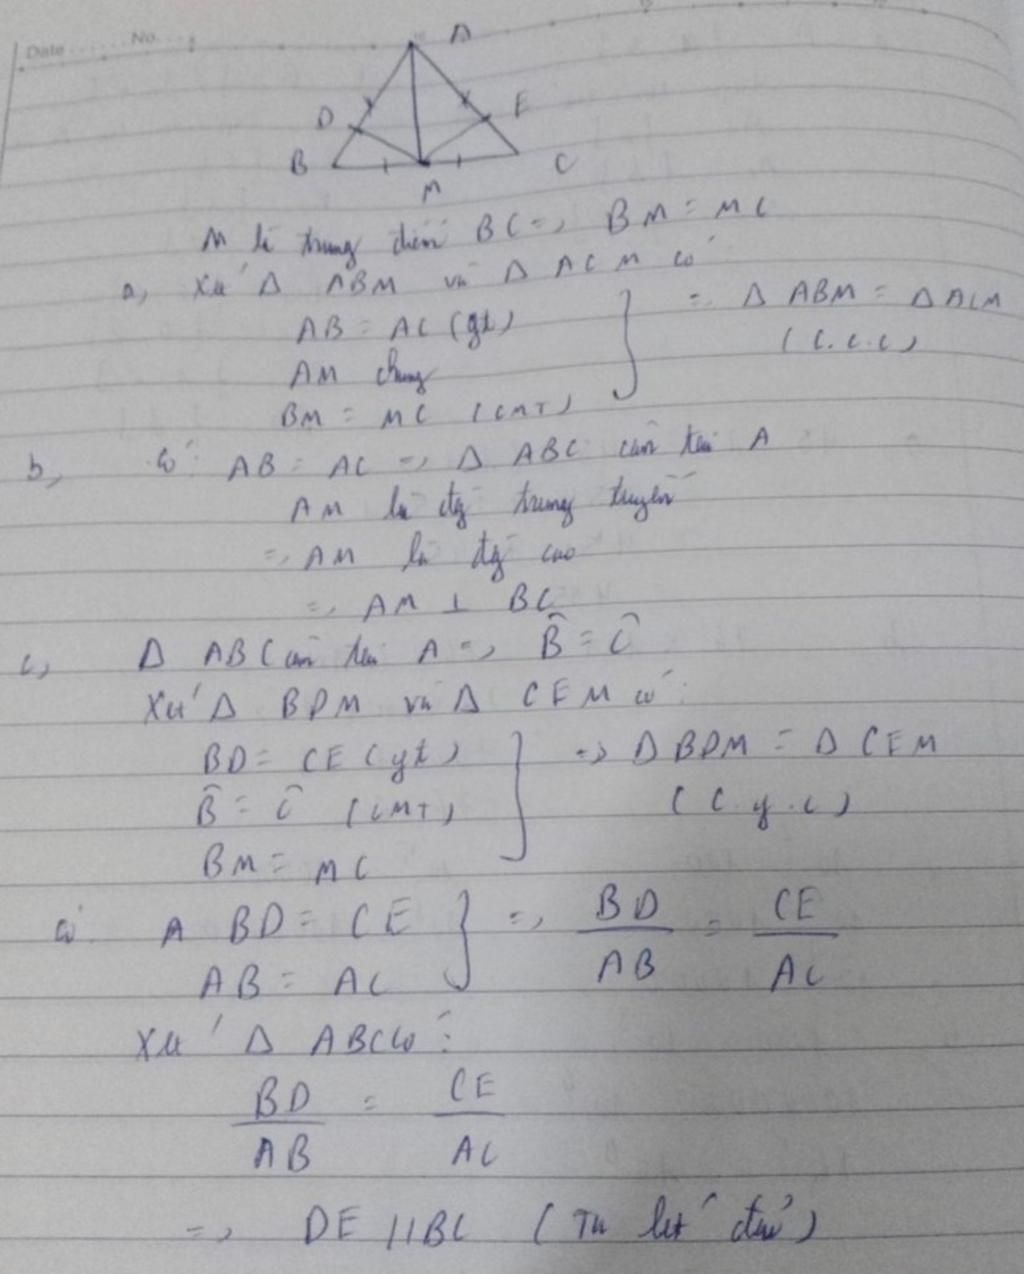 Date ...... No. ...
A
D
E
B
C
M
M là trung điểm BC => BM = MC
a, Xét Δ ABM và Δ ACM có
AB = AC (gt)
AM chung
BM = MC (CMT)
=> Δ ABM = Δ ACM
(c.c.c)
b, Có: AB = AC => Δ ABC cân tại A
AM là đg trung tuyến
=> AM là đg cao
=> AM ⊥ BC
c, Δ ABC cân tại A => B̂ = Ĉ
Xét Δ BDM và Δ CEM có:
BD = CE (gt)
B̂ = Ĉ (CMT)
BM = MC
=> Δ BDM = Δ CEM
(c.g.c)
Có: A BD = CE
AB = AC
=> BD/AB = CE/AC
Xét Δ ABC có:
BD/AB = CE/AC
=> DE // BC (Ta lét đảo)